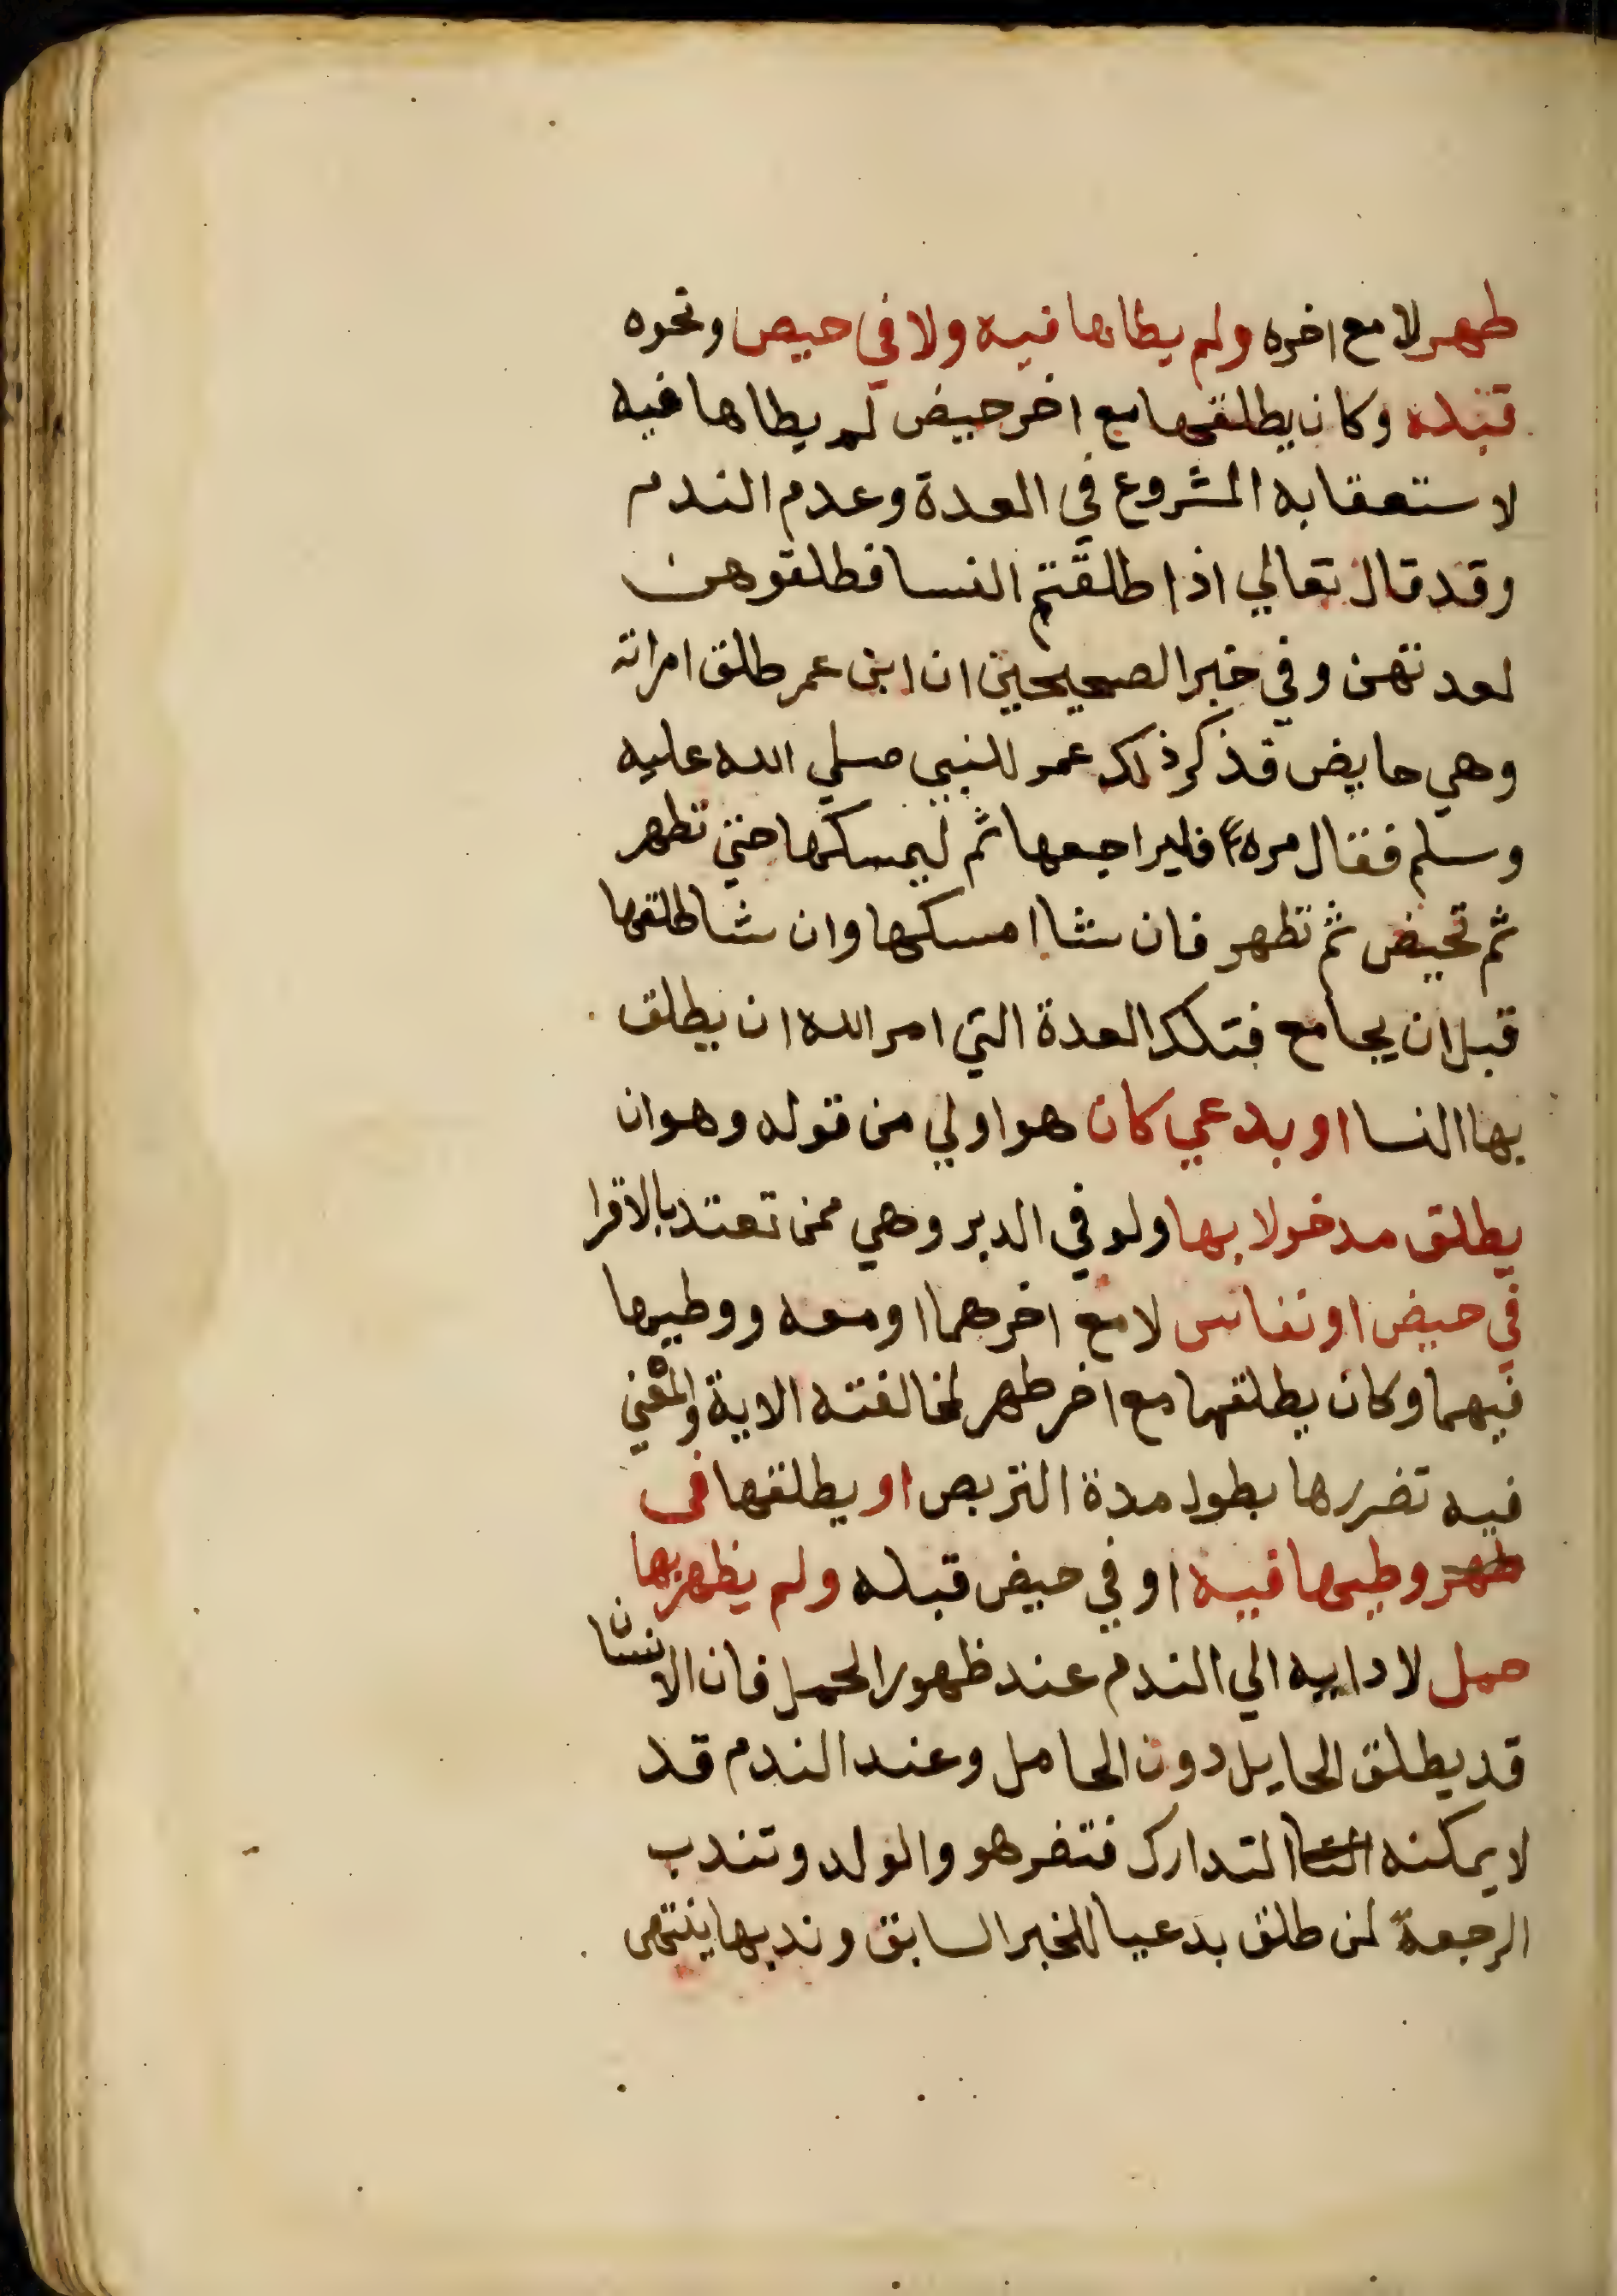 طهر لا مع اخره ولم يطاها فيه ولا في حيض ونحوه
قبله وكان يطلقها مع اخر حيض لم يطاها فيه
لاستعقابه الشروع في العدة وعدم الندم
وقد قال تعالي اذا طلقتم النسا فطلقوهن
لعدتهن وفي خبر الصحيحين ان ابن عمر طلق امراته
وهي حايض فذكر ذلك عمر للنبي صلي الله عليه
وسلم فقال مره فليراجعها ثم ليمسكها حتي تطهر
ثم تحيض ثم تطهر فان شا امسكها وان شا طلقها
قبل ان يجامع فتلك العدة التي امر الله ان يطلق
بها النسا او بدعي كان هو اولي من قوله وهو ان
يطلق مدخولا بها ولو في الدبر وهي ممن تعتد بالاقرا
في حيض او نفاس لا مع اخرهما او معه ووطيها
فيهما وكان يطلقها مع اخر طهر لمخالفته الاية والمعني
فيه تضررها بطول مدة التربص او يطلقها في
طهر وطيها فيه او في حيض قبله ولم يظهر بها
حمل لادايه الي الندم عند ظهور الحمل فان الانسان
قد يطلق الحايل دون الحامل وعند الندم قد
لا يمكنه التدارك فتضر هو والولد وتندب
الرجعة لمن طلق بدعيا للخبر السابق وندبها ينتهى